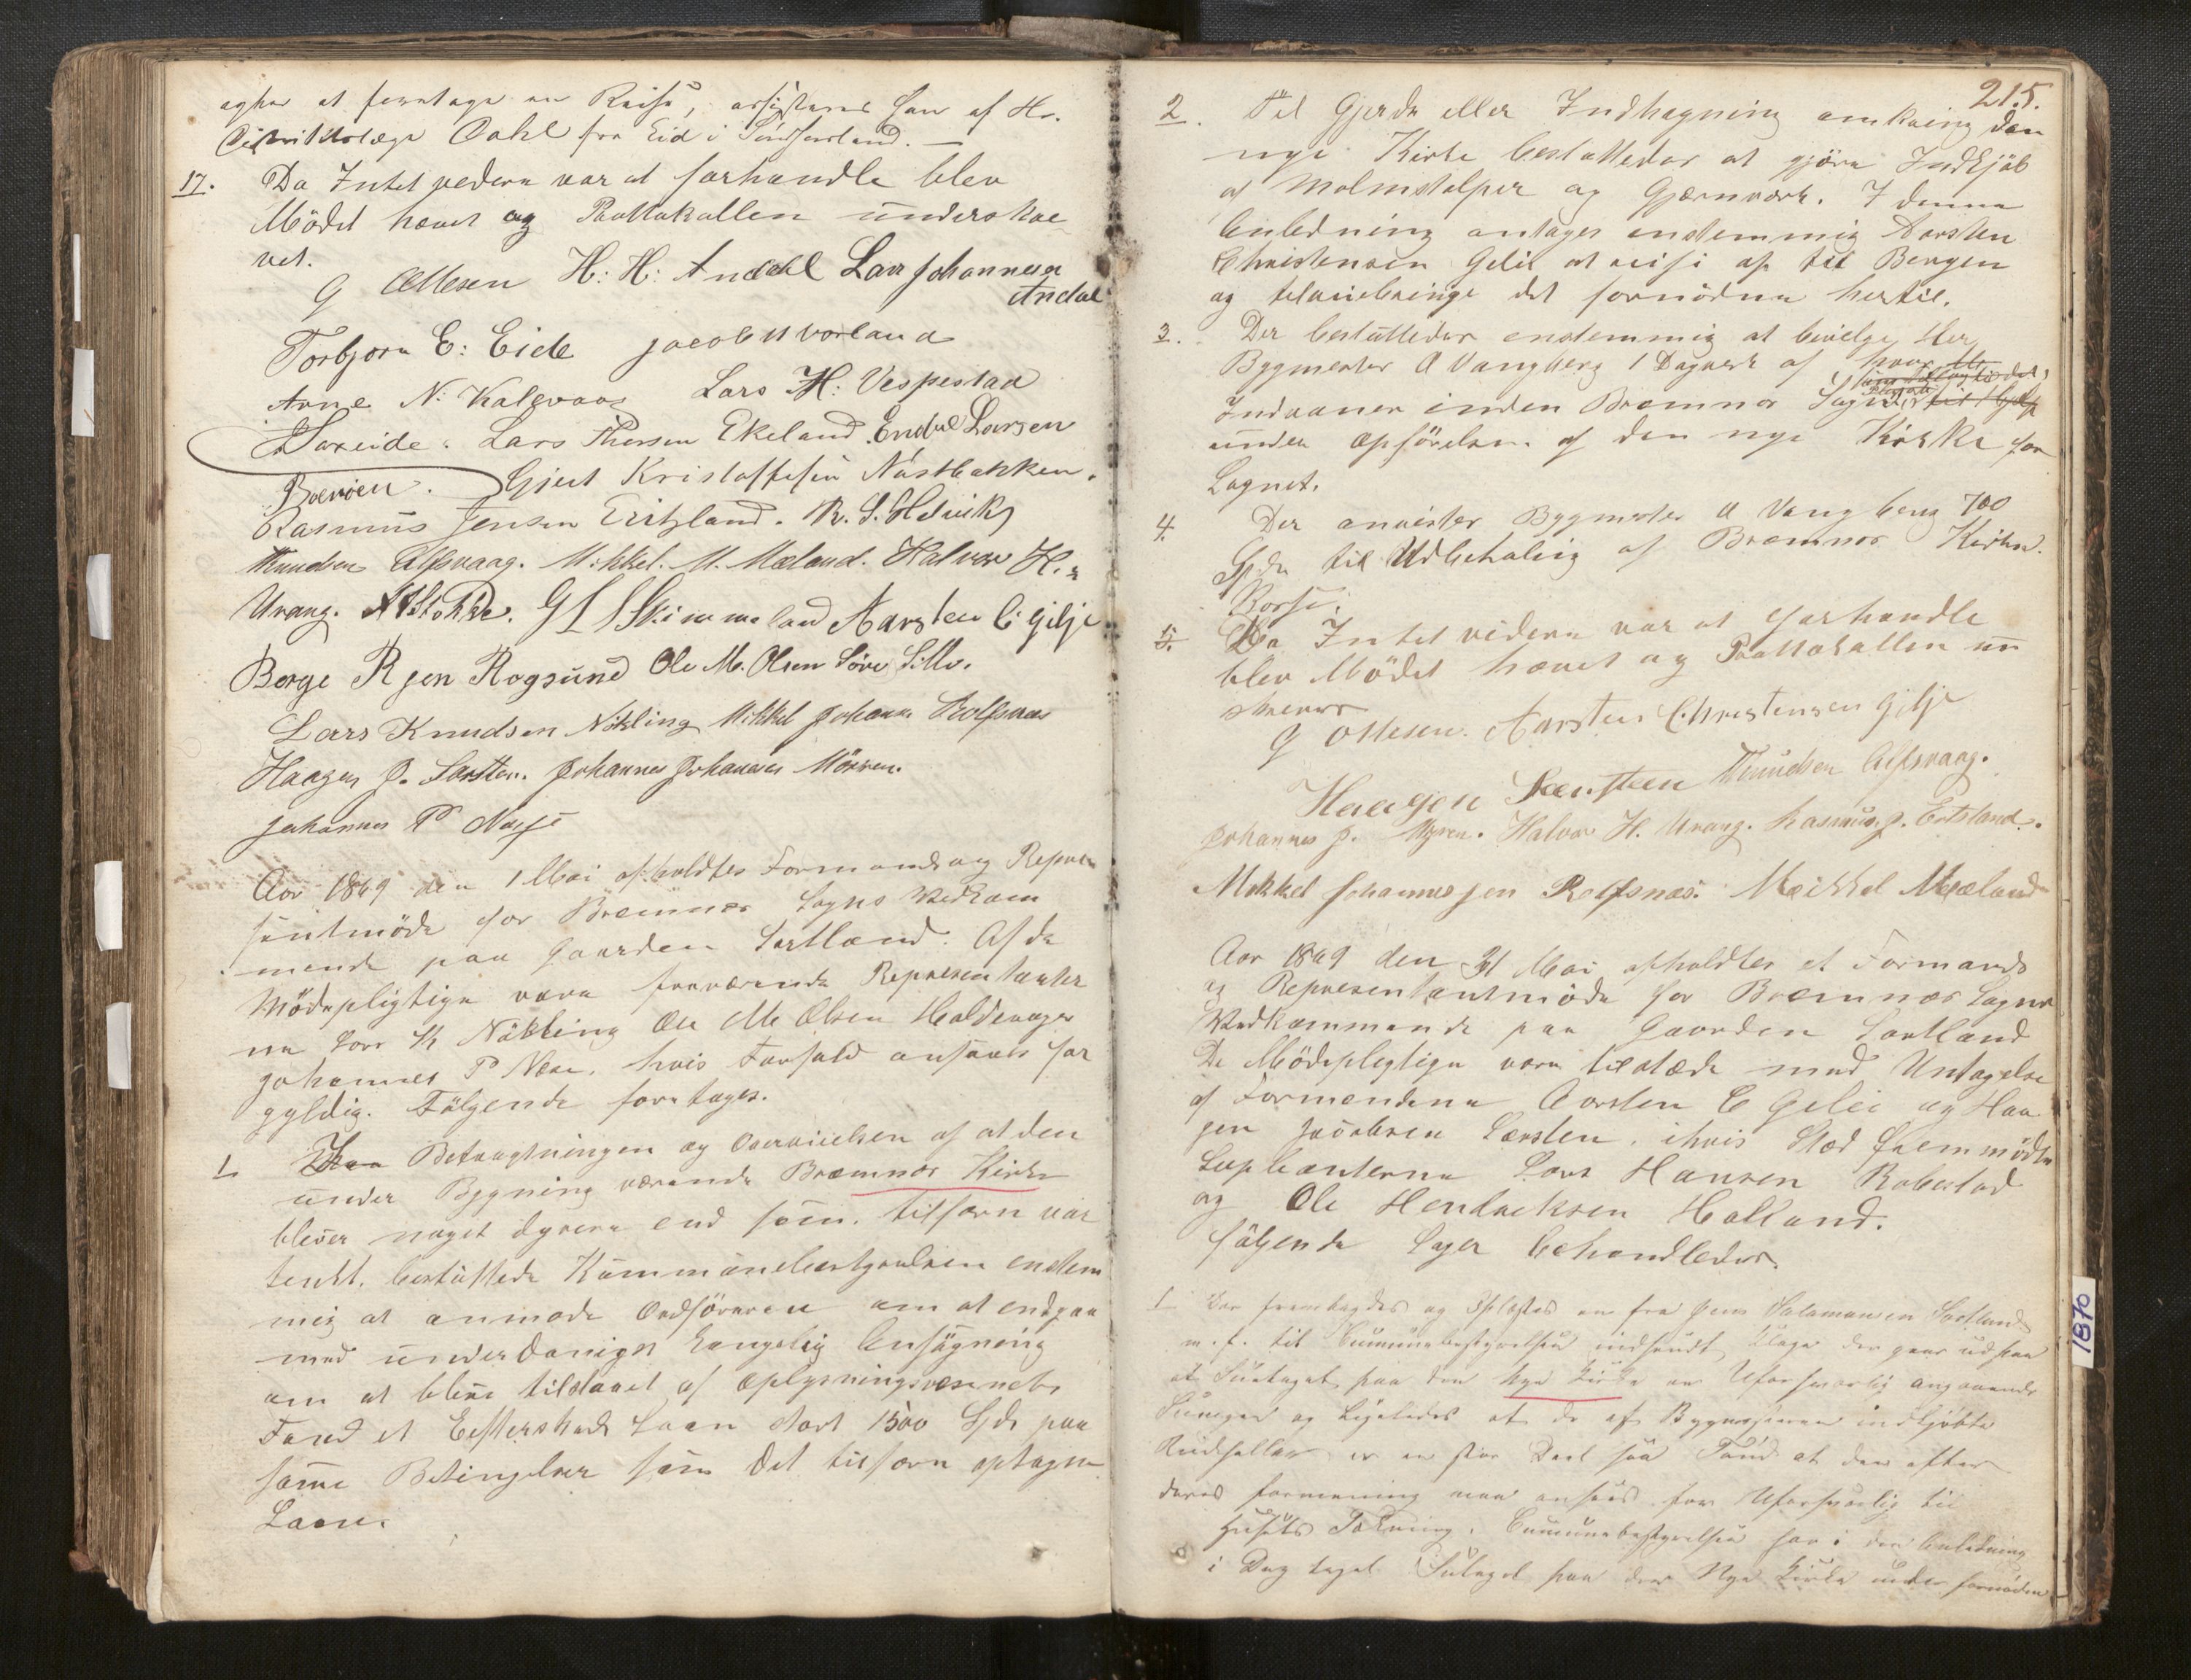 at foretage en Reise, assisteres han af Hr.
Distriktslæge Dahl fra Eid i Söndhordland. —
17. Da Intet videre var at forhandle blev
Mödet hævet og Prottokollen underskre
vet.
G Ottesen H: H: Andahl Lars Johannesen
Andal
Torbjorn E: Eide Jacob Vorland
Arne N. Kalevaag Lars H: Vespestad
Saxeide. Lars Thersen Ekeland Endre Larsen
Börøen. Gjert Kristoffersen Nästbakken.
Rasmus Jensen Eritzland. R. S. Helvik
Knudsen Alfsvaag. Mikkel. M. Mæland. Halvor H.
Urang. Stokke. G L S Skimmeland Aarsten C: Gilje
Børge R sen Rogsund Ole M. Olsen Söre Lillo.
Lars Knudsen Nökling Mikkel Johannes Rolfsnæs
Haagen J. Sørsteen. Johannes Johannes Mörren.
Johannes P Næse
Aar 1869 den 1 Mai afholdtes Formands og Repre
sentmöde for Bremnes Sogns Vedkom
mende paa Gaarden Sortland. Af de
Mödepligtige vare fraværende Represententer
ne Lars K Nökling Ole M Olsen Holdevager
Johannes P Næse. hvis Forfald ansaaes for
gyldig. Fölgende foretoges.
1 Betragtningen og Overveielsen af at den
under Bygning værende Bremnes Kirke
bliver noget dyrere end som tilforn var
tænkt, besluttede Kommunebestyrelsen enstem
mig at anmode Ordföreren om at endgaa
med underdanigst Kongelig Ansögning
om at blive tilstaaet af Oplysningsvæsenets
Fond et Efterskuds Laan stort 1500 Spd. paa
samme Betingelser som det tilforn optagne
Laan.
215.
2. Til Gjerde eller Indhegning omkring den
nye Kirke besluttedes at gjöre Indkjöb
af Malmstolper og Gjærnværk. I denne
Anledning antages enstemmig Aarsten
Christensen Gilie at reise op til Bergen
og tilveiebringe det fornödne hertil.
3. Der besluttedes enstemmig at bevilge Her
Bygmester A Vangberg 1 Dagverk af hver
Indvaaner inden Bremnes Sogn
under Opförelsen af den nye Kirke for
Sognet.
4. Der anvistes Bygmester A Vangberg 700
Spd. til Udbetaling af Bremnes Kirke
Kasse.
5. Da Intet videre var at forhandle
blev Mödet hævet og Prottokollen un
skrevet
G Ottesen. Aarsten Christensen Gilje
Haagen Sørsteen Knudsen Alfsvaag.
Johannes J. Myren. Halvor H. Urang. Rasmus J. Eritsland.
Mikkel Johannessen Rolfsnæs. Mikkel Mæland
Aar 1869 den 31 Mai afholdtes et Formands
og Representantmöde for Bremnes Sogns
Vedkommende paa Gaarden Sortland
De Mödepligtige vare tilstæde med Untagelse
af Formendene Aarsten C Gilie og Haa
gen Jacobsen Sørsten. i hvis Sted fremmödte
Supleanterne Lars Hansen Robestad
og Ole Hendricksen Holland.
fölgende Sager behandledes.
1 Der fremlagdes og oplæstes en fra Jens Salamonsen Sortland
m. f. til Communebestyrelsen indsendt Klage der gaar ud paa
at Suntaget paa den nye Kirke er Uforsvarlig angaaende
og ligeledes at de af Bygmesteren indkjöbte
er en stor Deel saa Tönd at den efter
deres formening maa ansees for Uforsvarlig til
Husets Tækning. Communebestyrelsen har i den Anledning
i Dag taget paa den Nye Kirke under fornöden
1870